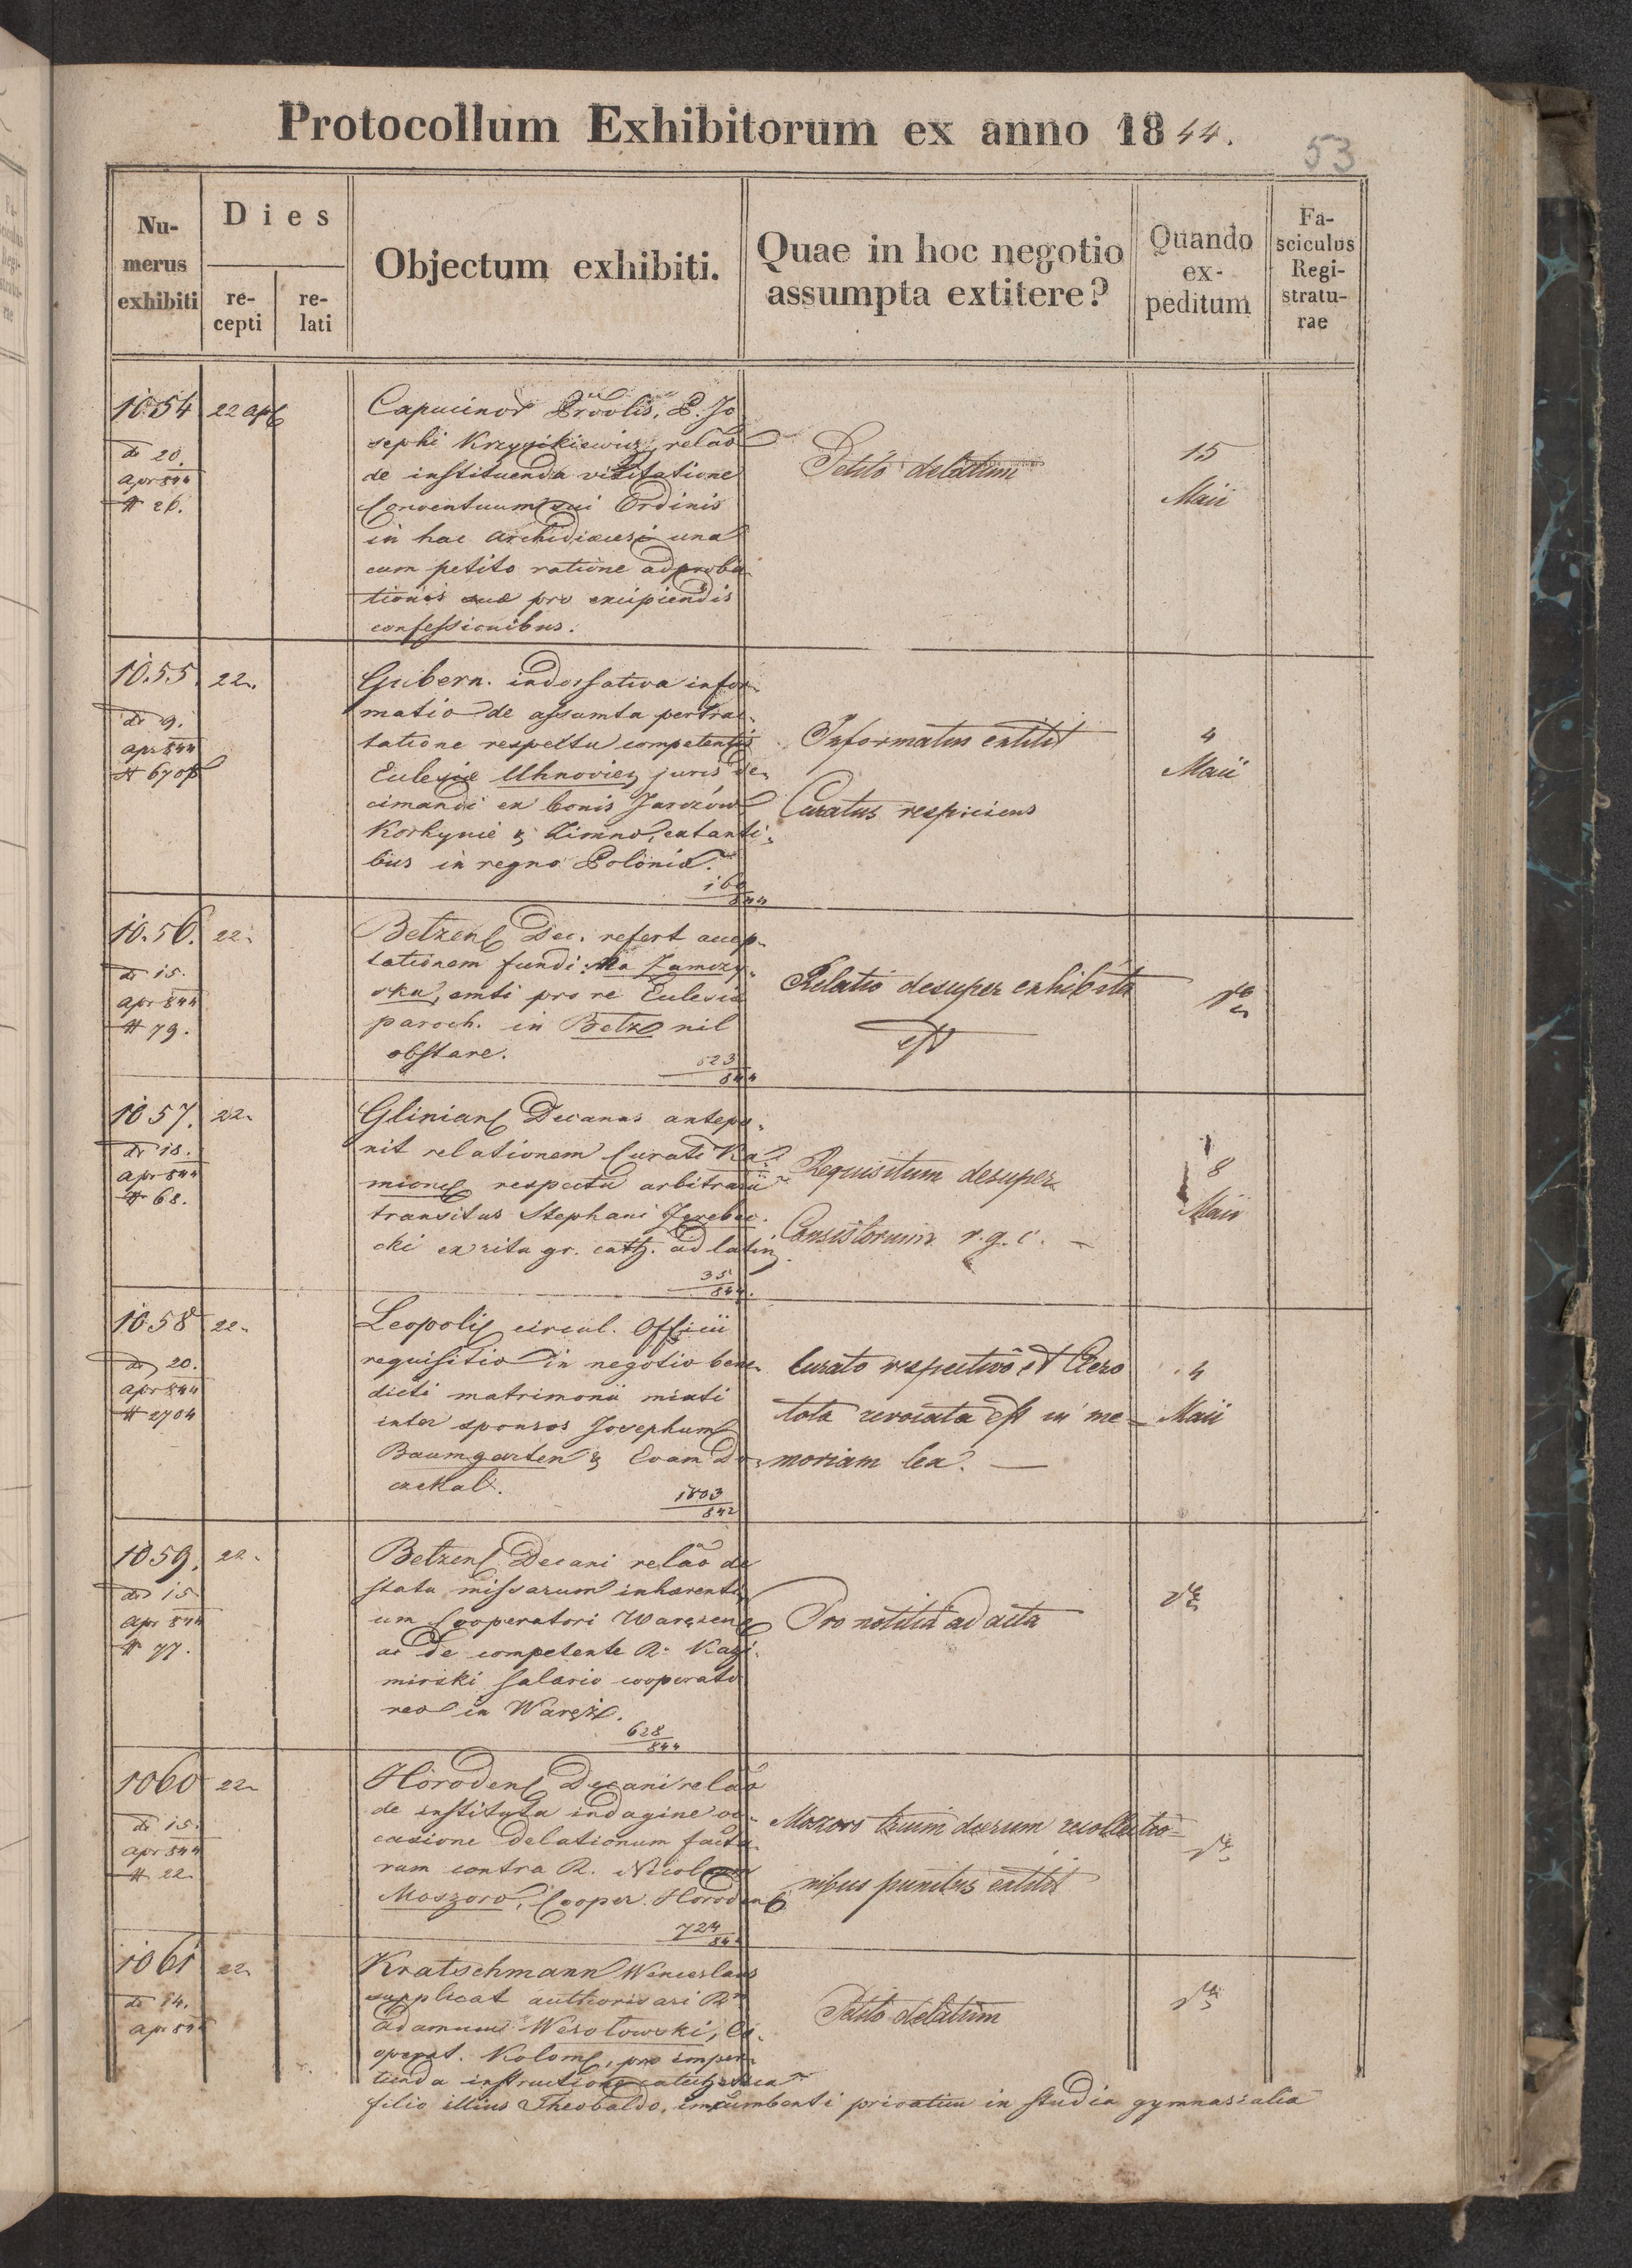 Protocollum Exhibitorum ex anno 1844.
53
Nu-
merus
exhibiti
Dies
re-
cepti
re-
lati
Objectum exhibiti.
Quae in hoc negotio
assumpta extitere?
Quando
ex-
peditum
Fa-
sciculus
Regi-
stratu-
rae
1054
22 apl
de 20.
apr 844
# 26.
Capucinor Provlis, P. Jo
sephi relao
de instituenda visitatione
Conventuum sui Ordinis
in hac Archidiaecesi una
cum petito ratione adproba
tionis suae pro excipiendis
confessionibus.
Petito delatum
15
Maii
1055.
22.
de 9.
apr 844
# 6707
Gubern. indossativa infor-
matio de assumta pertrac-
tatione respectu competentis
Eclesiae Uhnoviez juris de-
cimandi ex bonis Jarczów
Korhynie & Zimno, extanti-
bus in regno Poloniae.
160
844
Informatus extitit
Curatus respiciens
4
Maii
1056.
22.
de 15.
apr 844
# 79.
Betzens Dec. refert accep-
tationem fundi: Na Zamczy-
sku, emti pro re Eclesia
paroch. in Betz nil
obstare.
523
844
Relatio desuper exhibita
est
1057.
22.
de 18.
apr 844
# 68.
Glinians Decanus antepo-
nit relationem Curati Ka-
mionens respectu arbitrarii
transitus Stephani Jerebec-
cki ex ritu gr. cath. ad latin
35
844.
Requisitum desuper
Consistorium r. g. c. -
8
Maii
1058
22.
de 20.
apr 844
# 2704
Leopolis circul. Officii
requisitio in negotio bene-
dicti matrimonii mixti
inter sponsos Josephum
Baumgarten & Evam Do-
czekal.
1803
842
Curato respectivo et
tota revocata est in me-
moriam lex. -
4
Maii
1059.
22.
de 15
apr 844
# 77.
Betzens Decani relao de
statu missarum inhaerenti
um Cooperatori Waręzens
ac de competente R. Kazi-
mirski salario cooperato
reo in Waręż.
628
844
Pro notitia ad acta
1060
22.
de 15.
apr 844
# 22
Horodens Decani relao
de instituta indagine oc-
casione delationum facta
rum contra R. Nicolaum
Moszoro, Cooper. Horodens
724
844
Moszoro trium dierum recollectio-
nibus punitus extitit
1061
22.
de 14.
apr 844
Kratschmann Wenceslaus
supplicat authorisari R
Adamum Wesołowski, Co-
operat. Kolom, pro imper-
tienda instructione catechetica
filio illius Theobaldo, incumbenti privatim in studia gymnasialia
Petito delatum